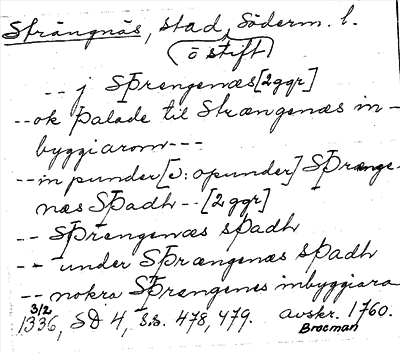 Strängnäs, stad, Söderm. l.
ö stift
-- j SÞrengenæs [2 ggr]
-- ok Þalade til Strængenæs in-
byggiarom ---
-- in punder [ɔ: opunder] SÞrænge-
næs SÞadh -- [2 ggr]
-- SÞrengenæs sÞadh
-- under SÞrængenæs sÞadh
-- nokra SÞrengenes inbyggiara
3/2
1336, SD 4, s.s. 478, 479. avskr. 1760.
Broeman